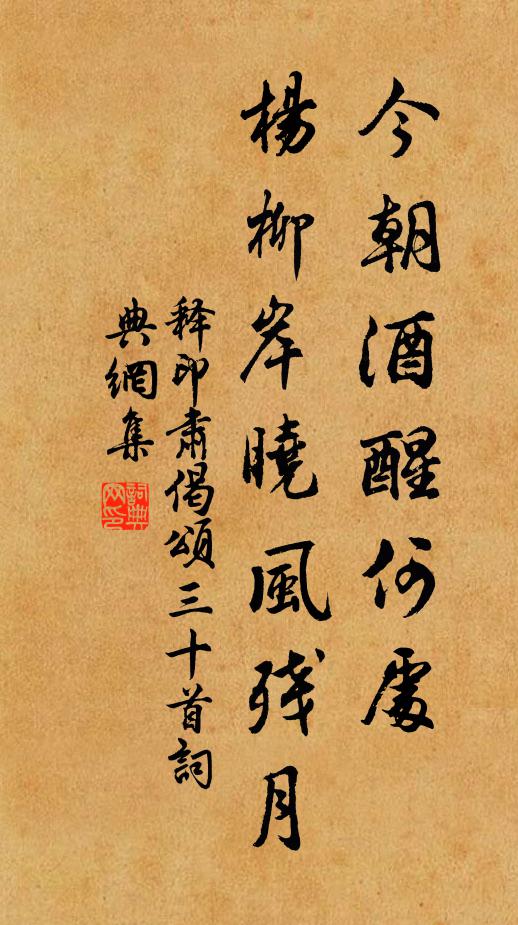 今朝酒醒何處
楊柳岸曉風残月
释印肅偈頌三十首詞
典網集
詞典
网印